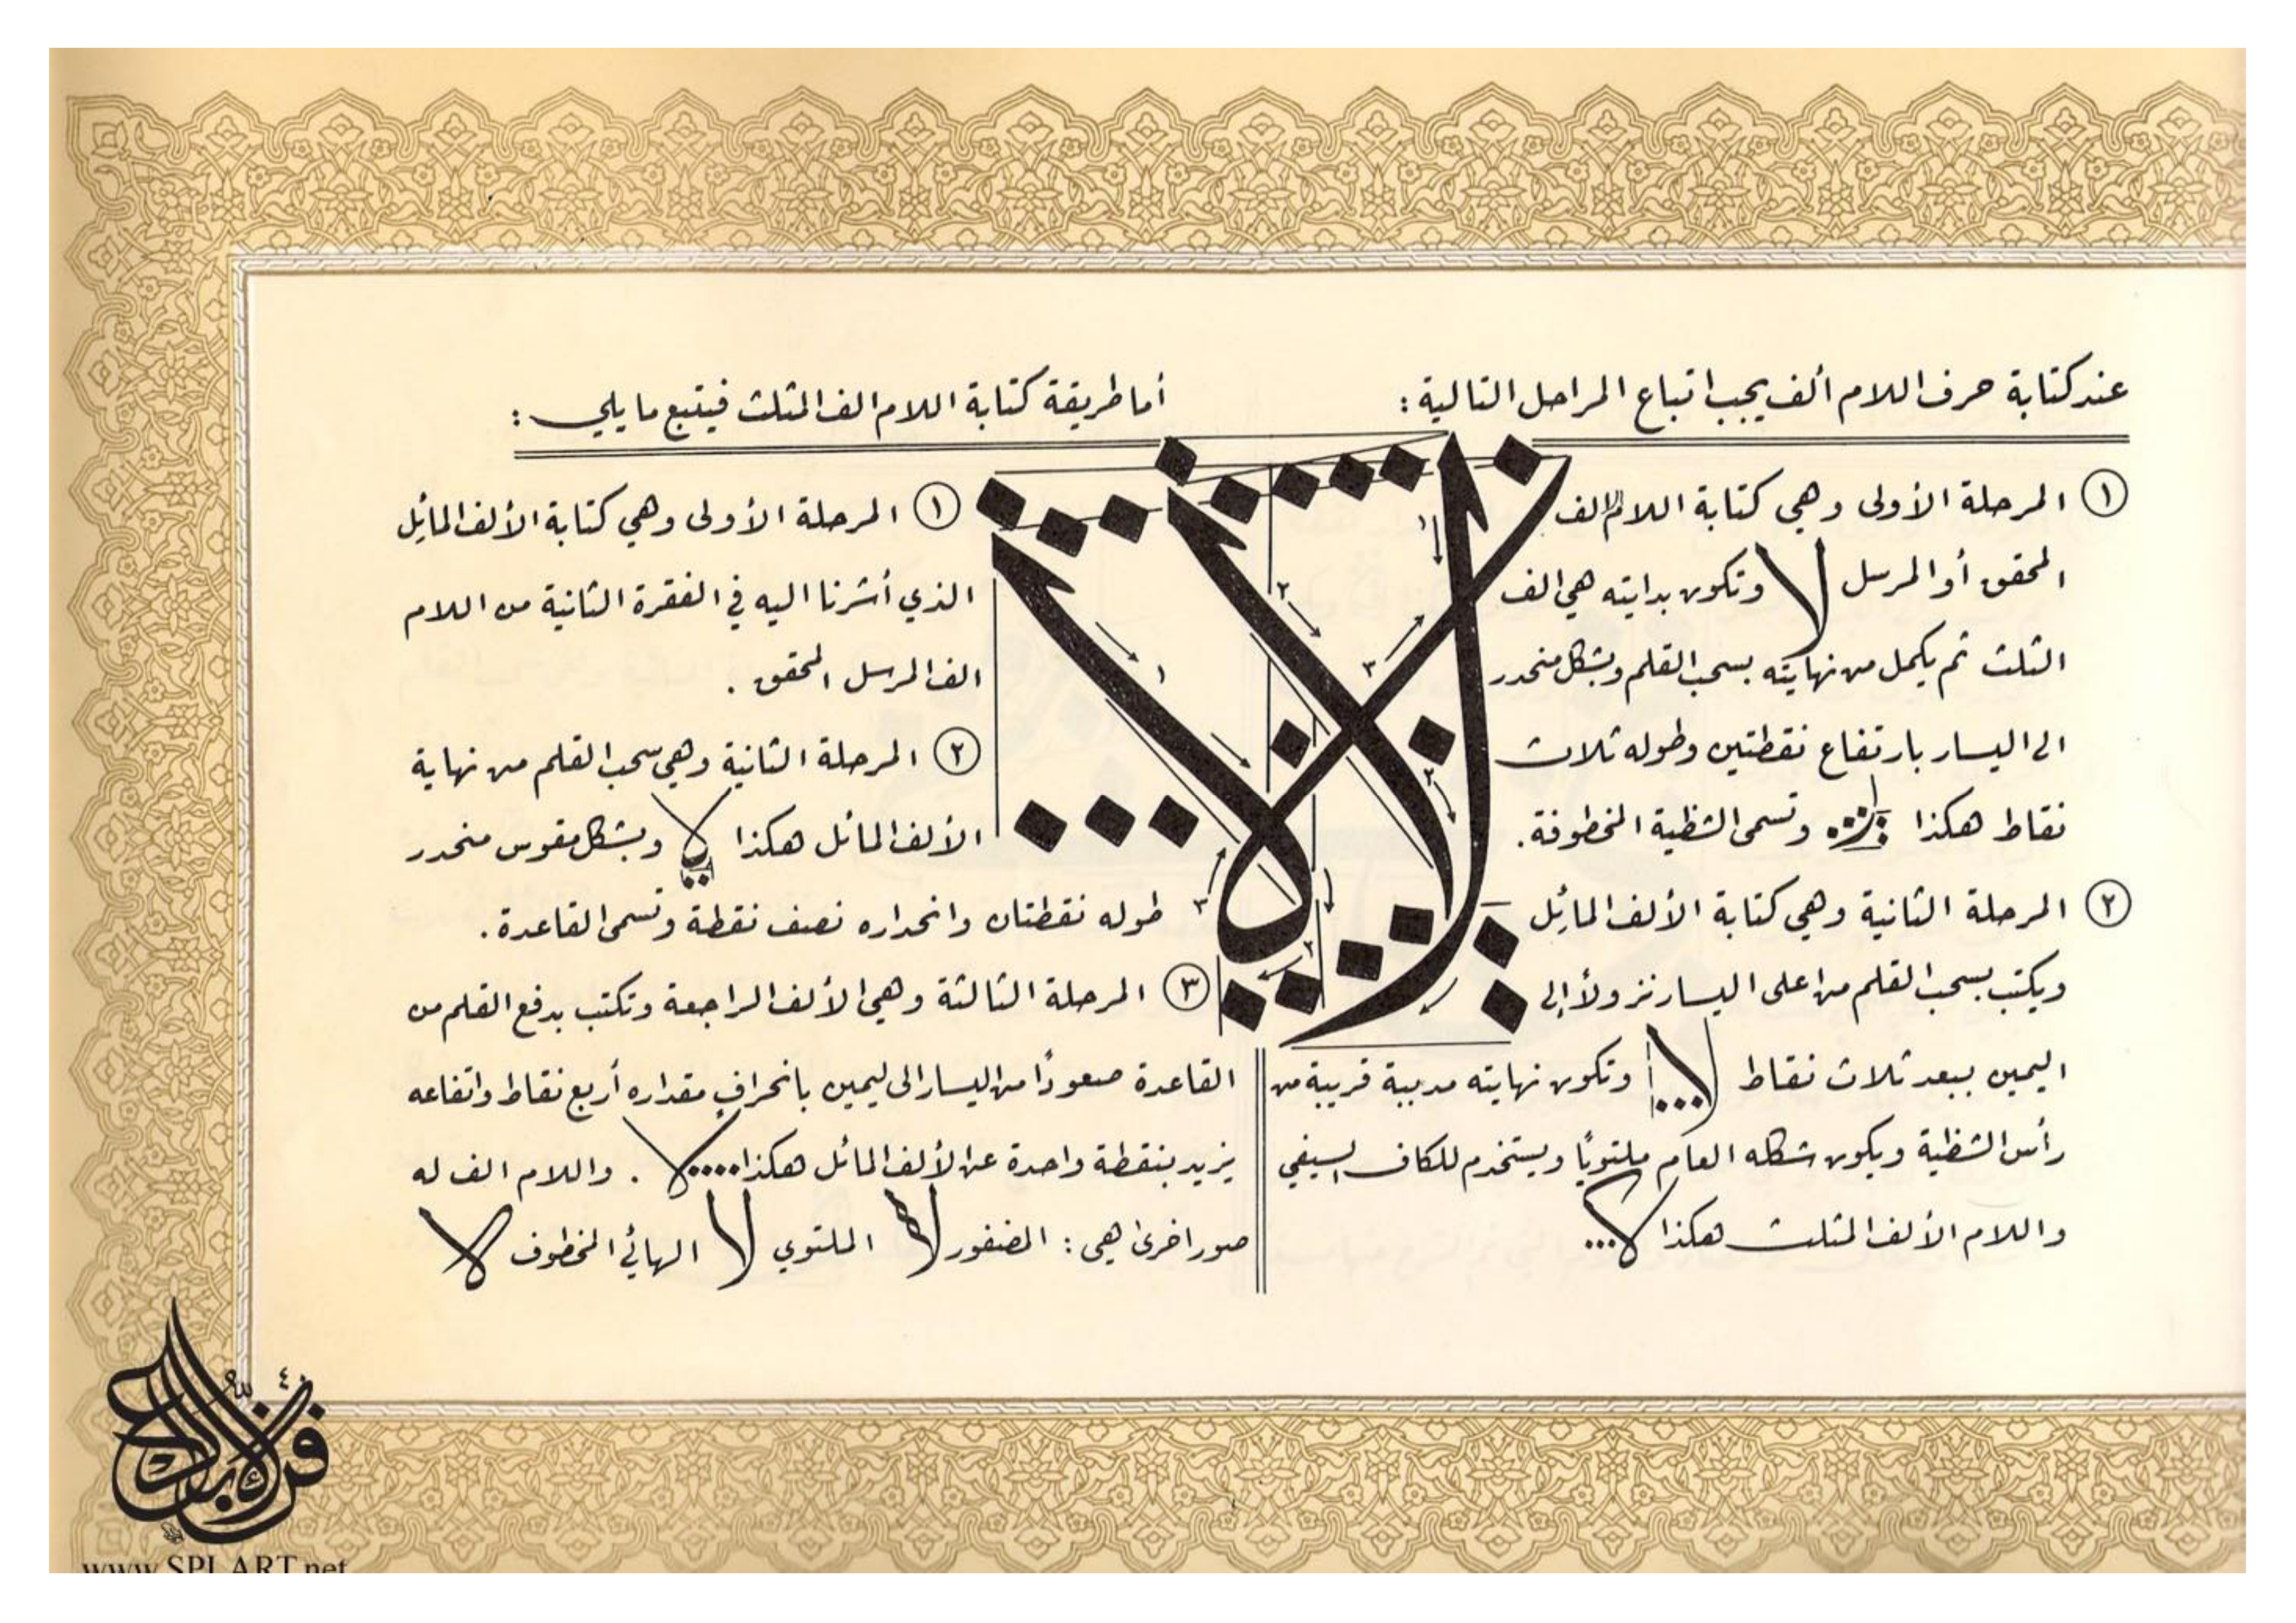 عند كتابة حرف اللام ألف يجب اتباع المراحل التالية :
١ المرحلة الأولى وهي كتابة اللام الف
المحقق أو المرسل لا وتكون بدايته هي الف
الثلث ثم يكمل من نهايته بسحب القلم وبشكل منحدر
الى اليسار بارتفاع نقطتين وطوله ثلاث
نقاط هكذا وتسمى الشظية المخطوفة .
٢ المرحلة الثانية وهي كتابة الألف المائل
ويكتب بسحب القلم من اعلى اليسار نزولاً إلى
اليمين ببعد ثلاث نقاط لا وتكون نهايته مدببة قريبة من
رأس الشظية ويكون شكله العام ملتويًا ويستخدم للكاف السيفي
واللام الألف المثلث هكذا لا
أما طريقة كتابة اللام الف المثلث فيتبع ما يلي :
١ المرحلة الأولى وهي كتابة الألف المائل
الذي أشرنا اليه في الفقرة الثانية من اللام
الف المرسل المحقق .
٢ المرحلة الثانية وهي سحب القلم من نهاية
الألف المائل هكذا وبشكل مقوس منحدر
طوله نقطتان وانحداره نصف نقطة وتسمى القاعدة .
٣ المرحلة الثالثة وهي الألف الراجعة وتكتب بدفع القلم من
القاعدة صعودًا من اليسار الى ليمين بانحراف مقداره أربع نقاط واتفاعه
يزيد بنقطة واحدة عن الألف المائل هكذا لا . واللام الف له
صور اخرى هي : المضفور لا الملتوي لا الهائي المخطوف لا
لا لا
١ ٢ ٣ ١ ٢ ٣ ٢
www.SPLART.net